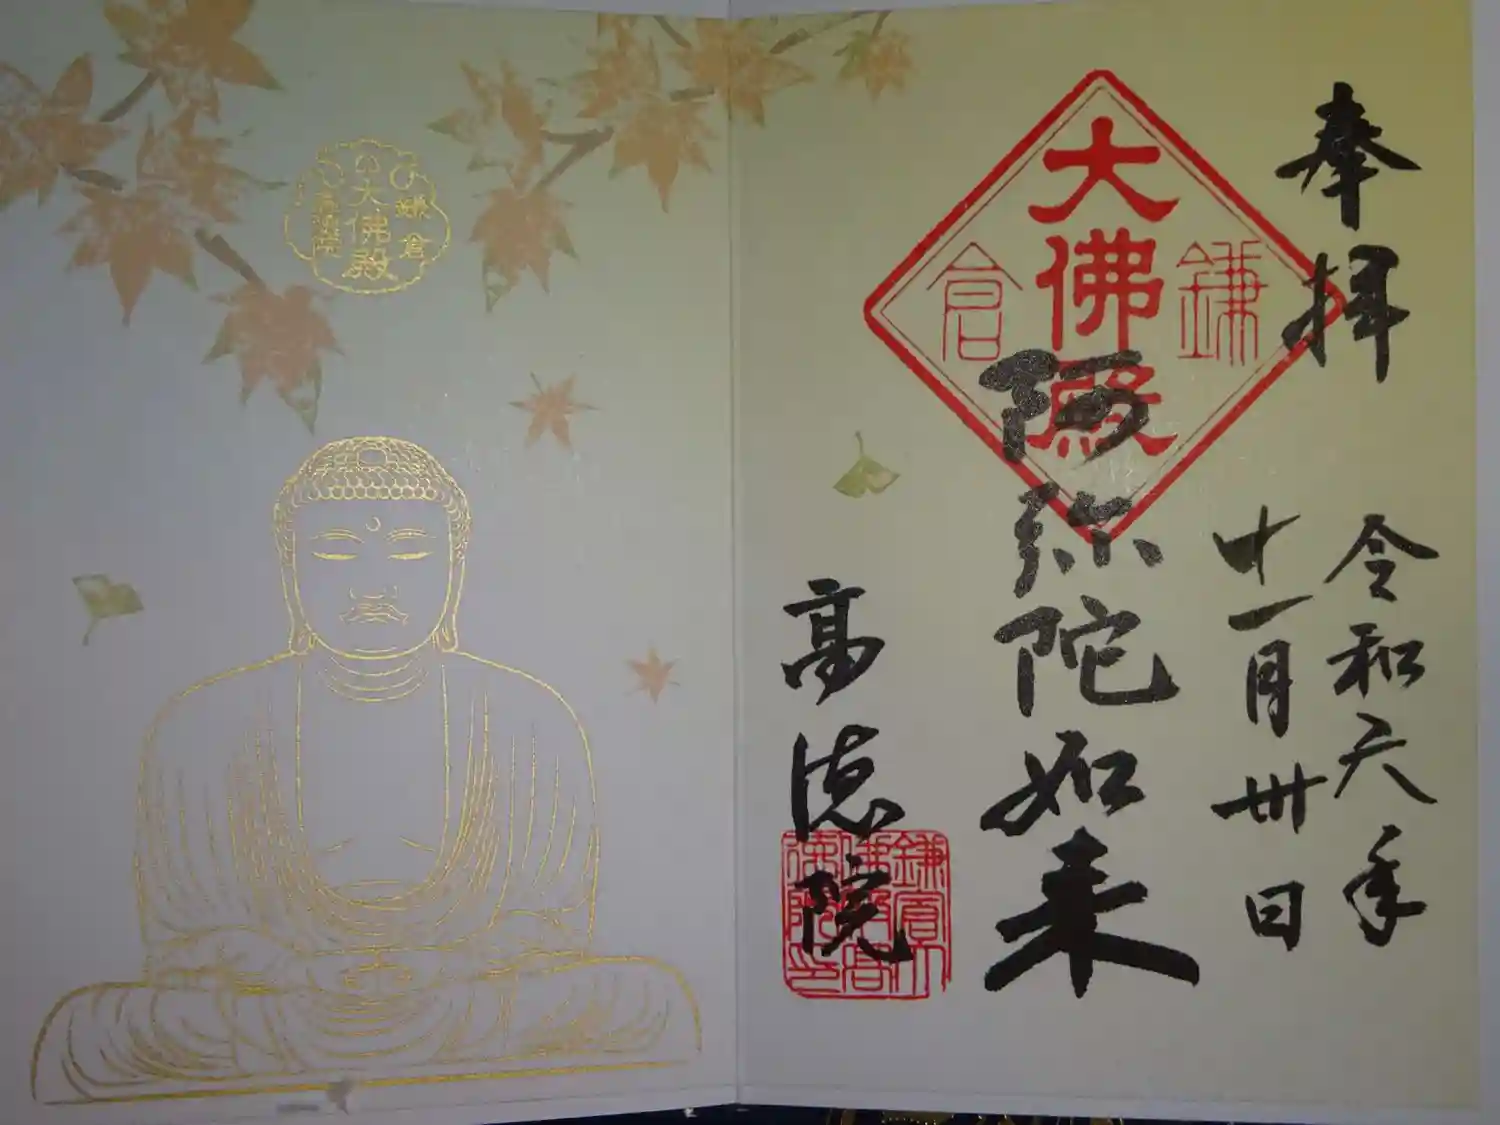 奉拝
令和六年
十一月卅日
鎌倉
大佛殿
阿弥陀如来
高徳院
鎌倉
大佛殿
高徳院